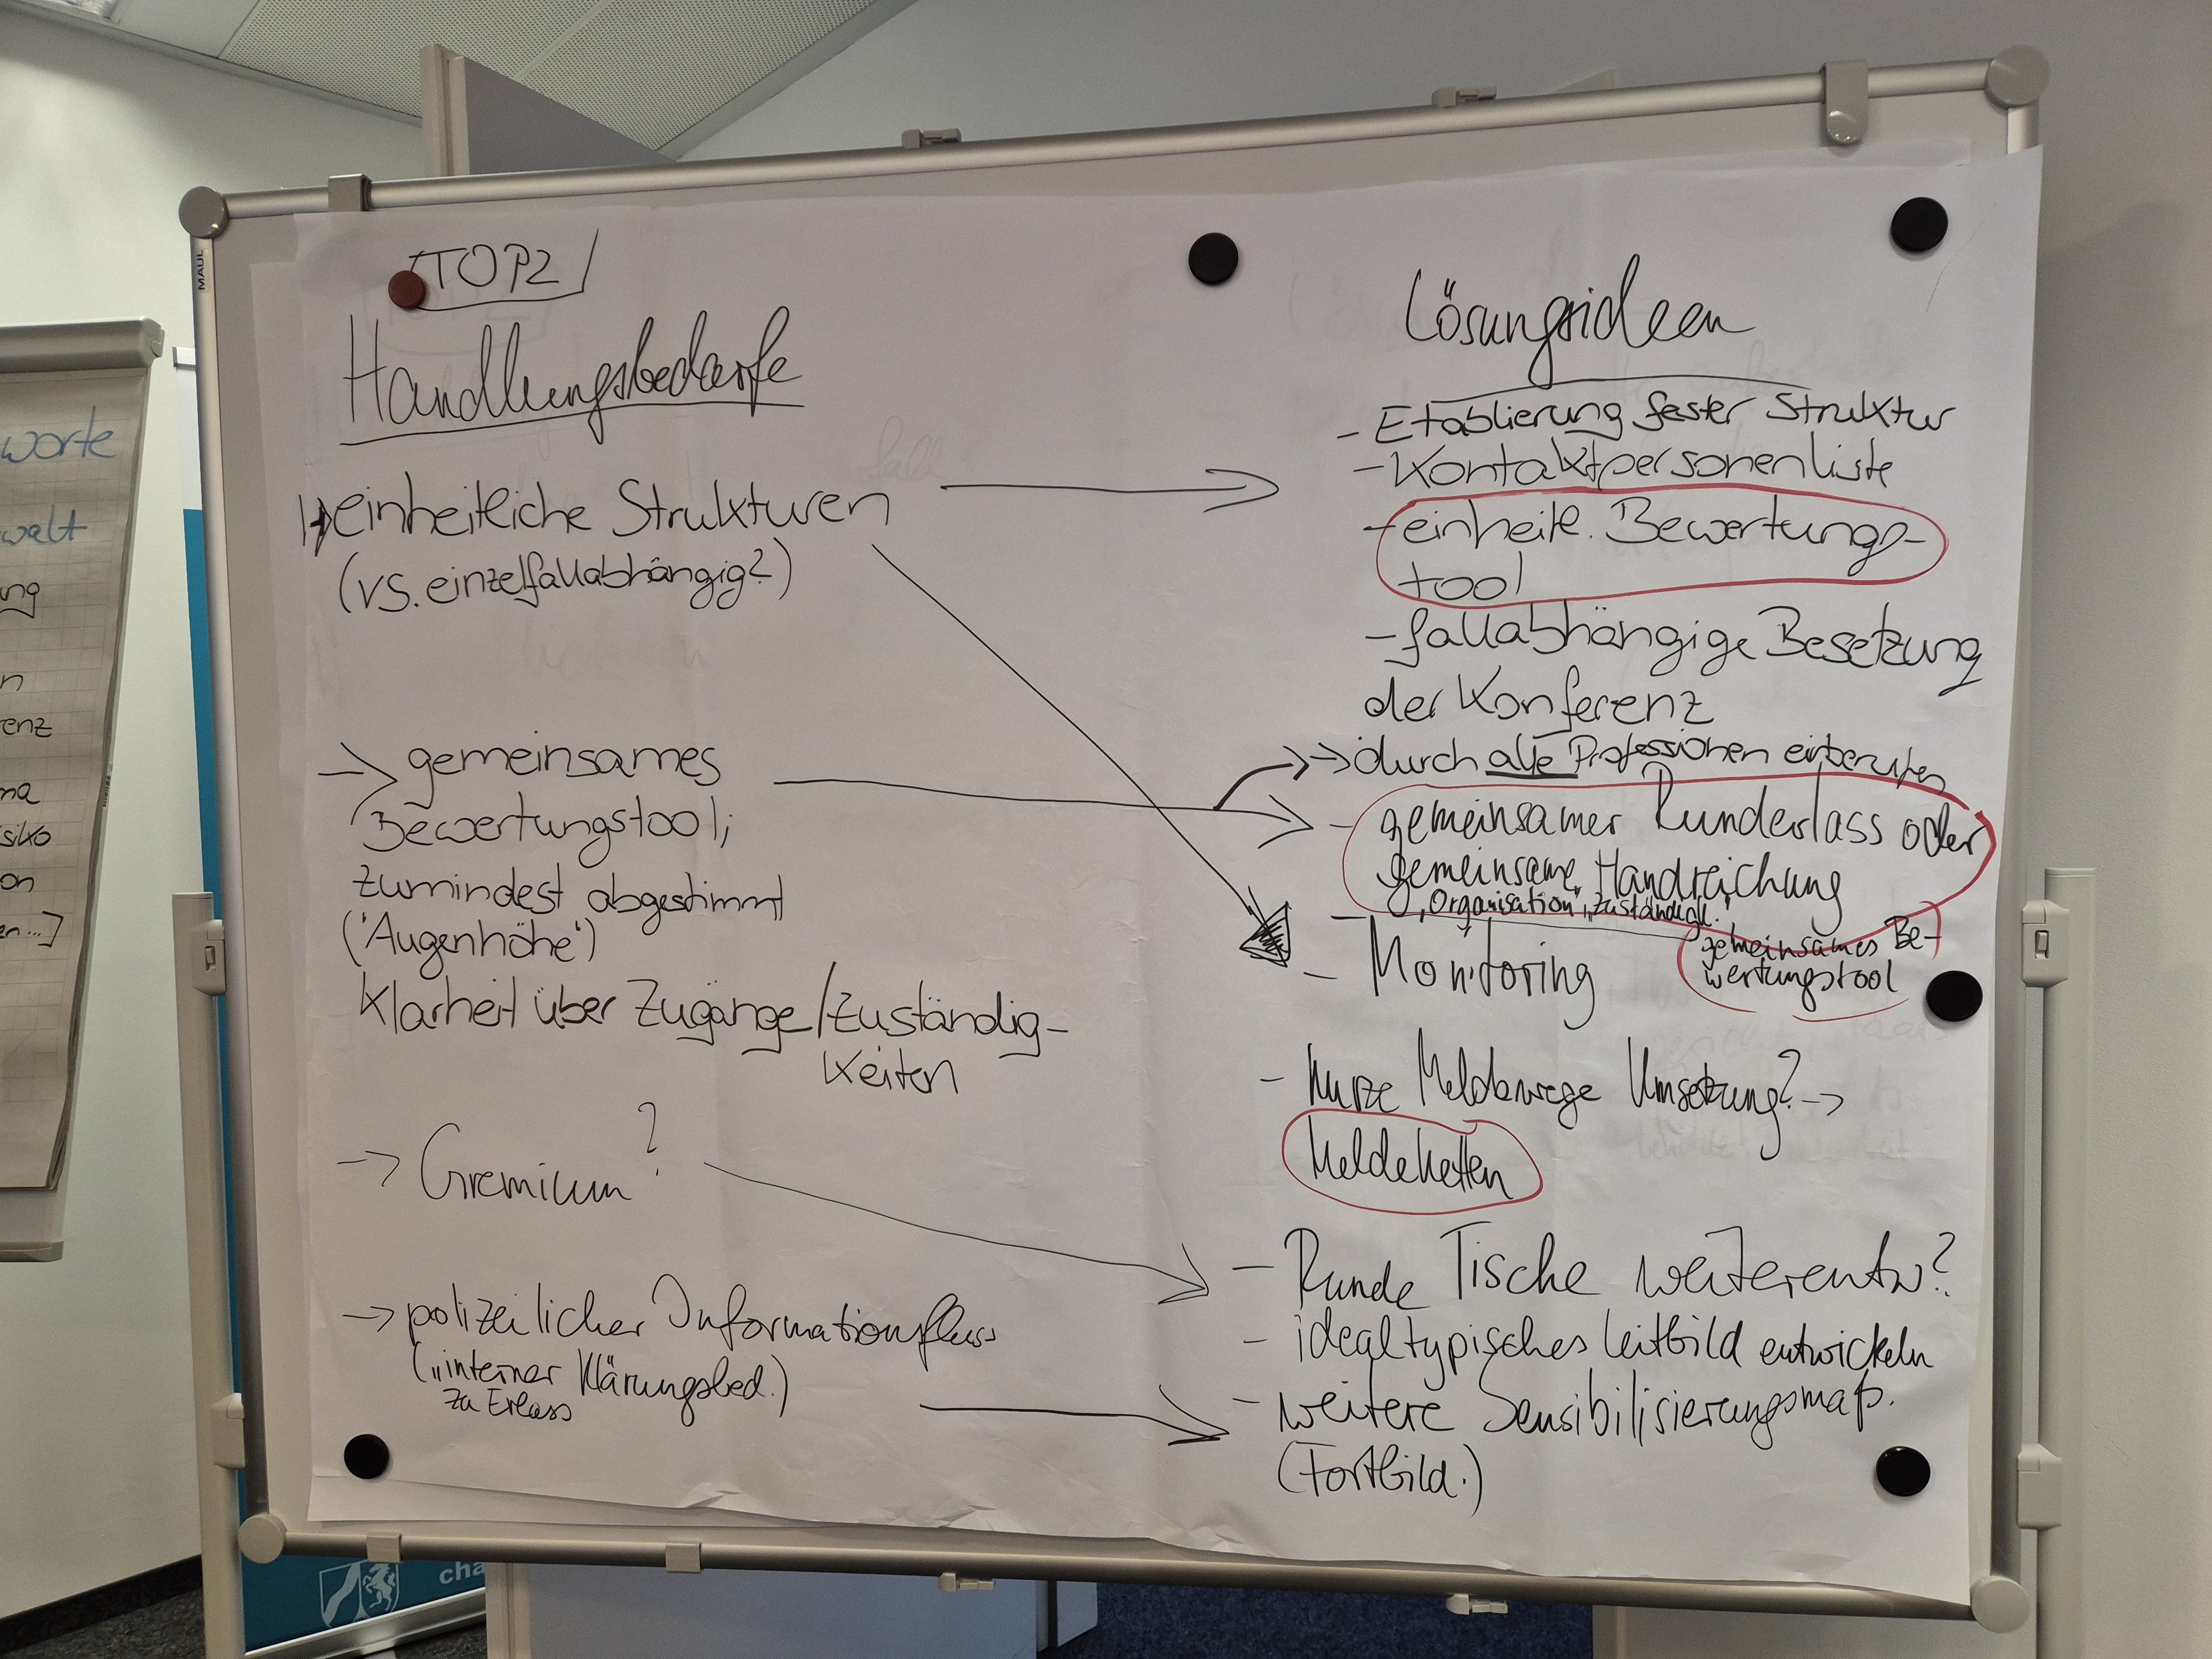 TOP2
Handlungsbedarfe
einheitliche Strukturen
(vs. einzelfallabhängig?)
→ gemeinsames
Bewertungstool;
zumindest abgestimmt
("Augenhöhe")
Klarheit über Zugänge/Zuständig-
keiten
→ Gremium?
→ polizeilicher Informationsfluss
("interner Klärungsbed.)
zu Erlass
Lösungsideen
- Etablierung fester Struktur
- Kontaktpersonenliste
- einheitl. Bewertungs-
tool
- fallabhängige Besetzung
der Konferenz
→ durch alle Professionen einberufen
- gemeinsamer Runderlass oder
gemeinsame Handreichung
"Organisation", "Zuständigk."
gemeinsames Be-
wertungstool
- Monitoring
- kurze Meldewege Umsetzung? →
Meldeketten
- Runde Tische weiterentw?
- idealtypisches Leitbild entwickeln
- weitere Sensibilisierungsmaß.
(Fortbild.)
MAUL
worte
walt
ng
n
enz
ma
siko
on
en...]
cha